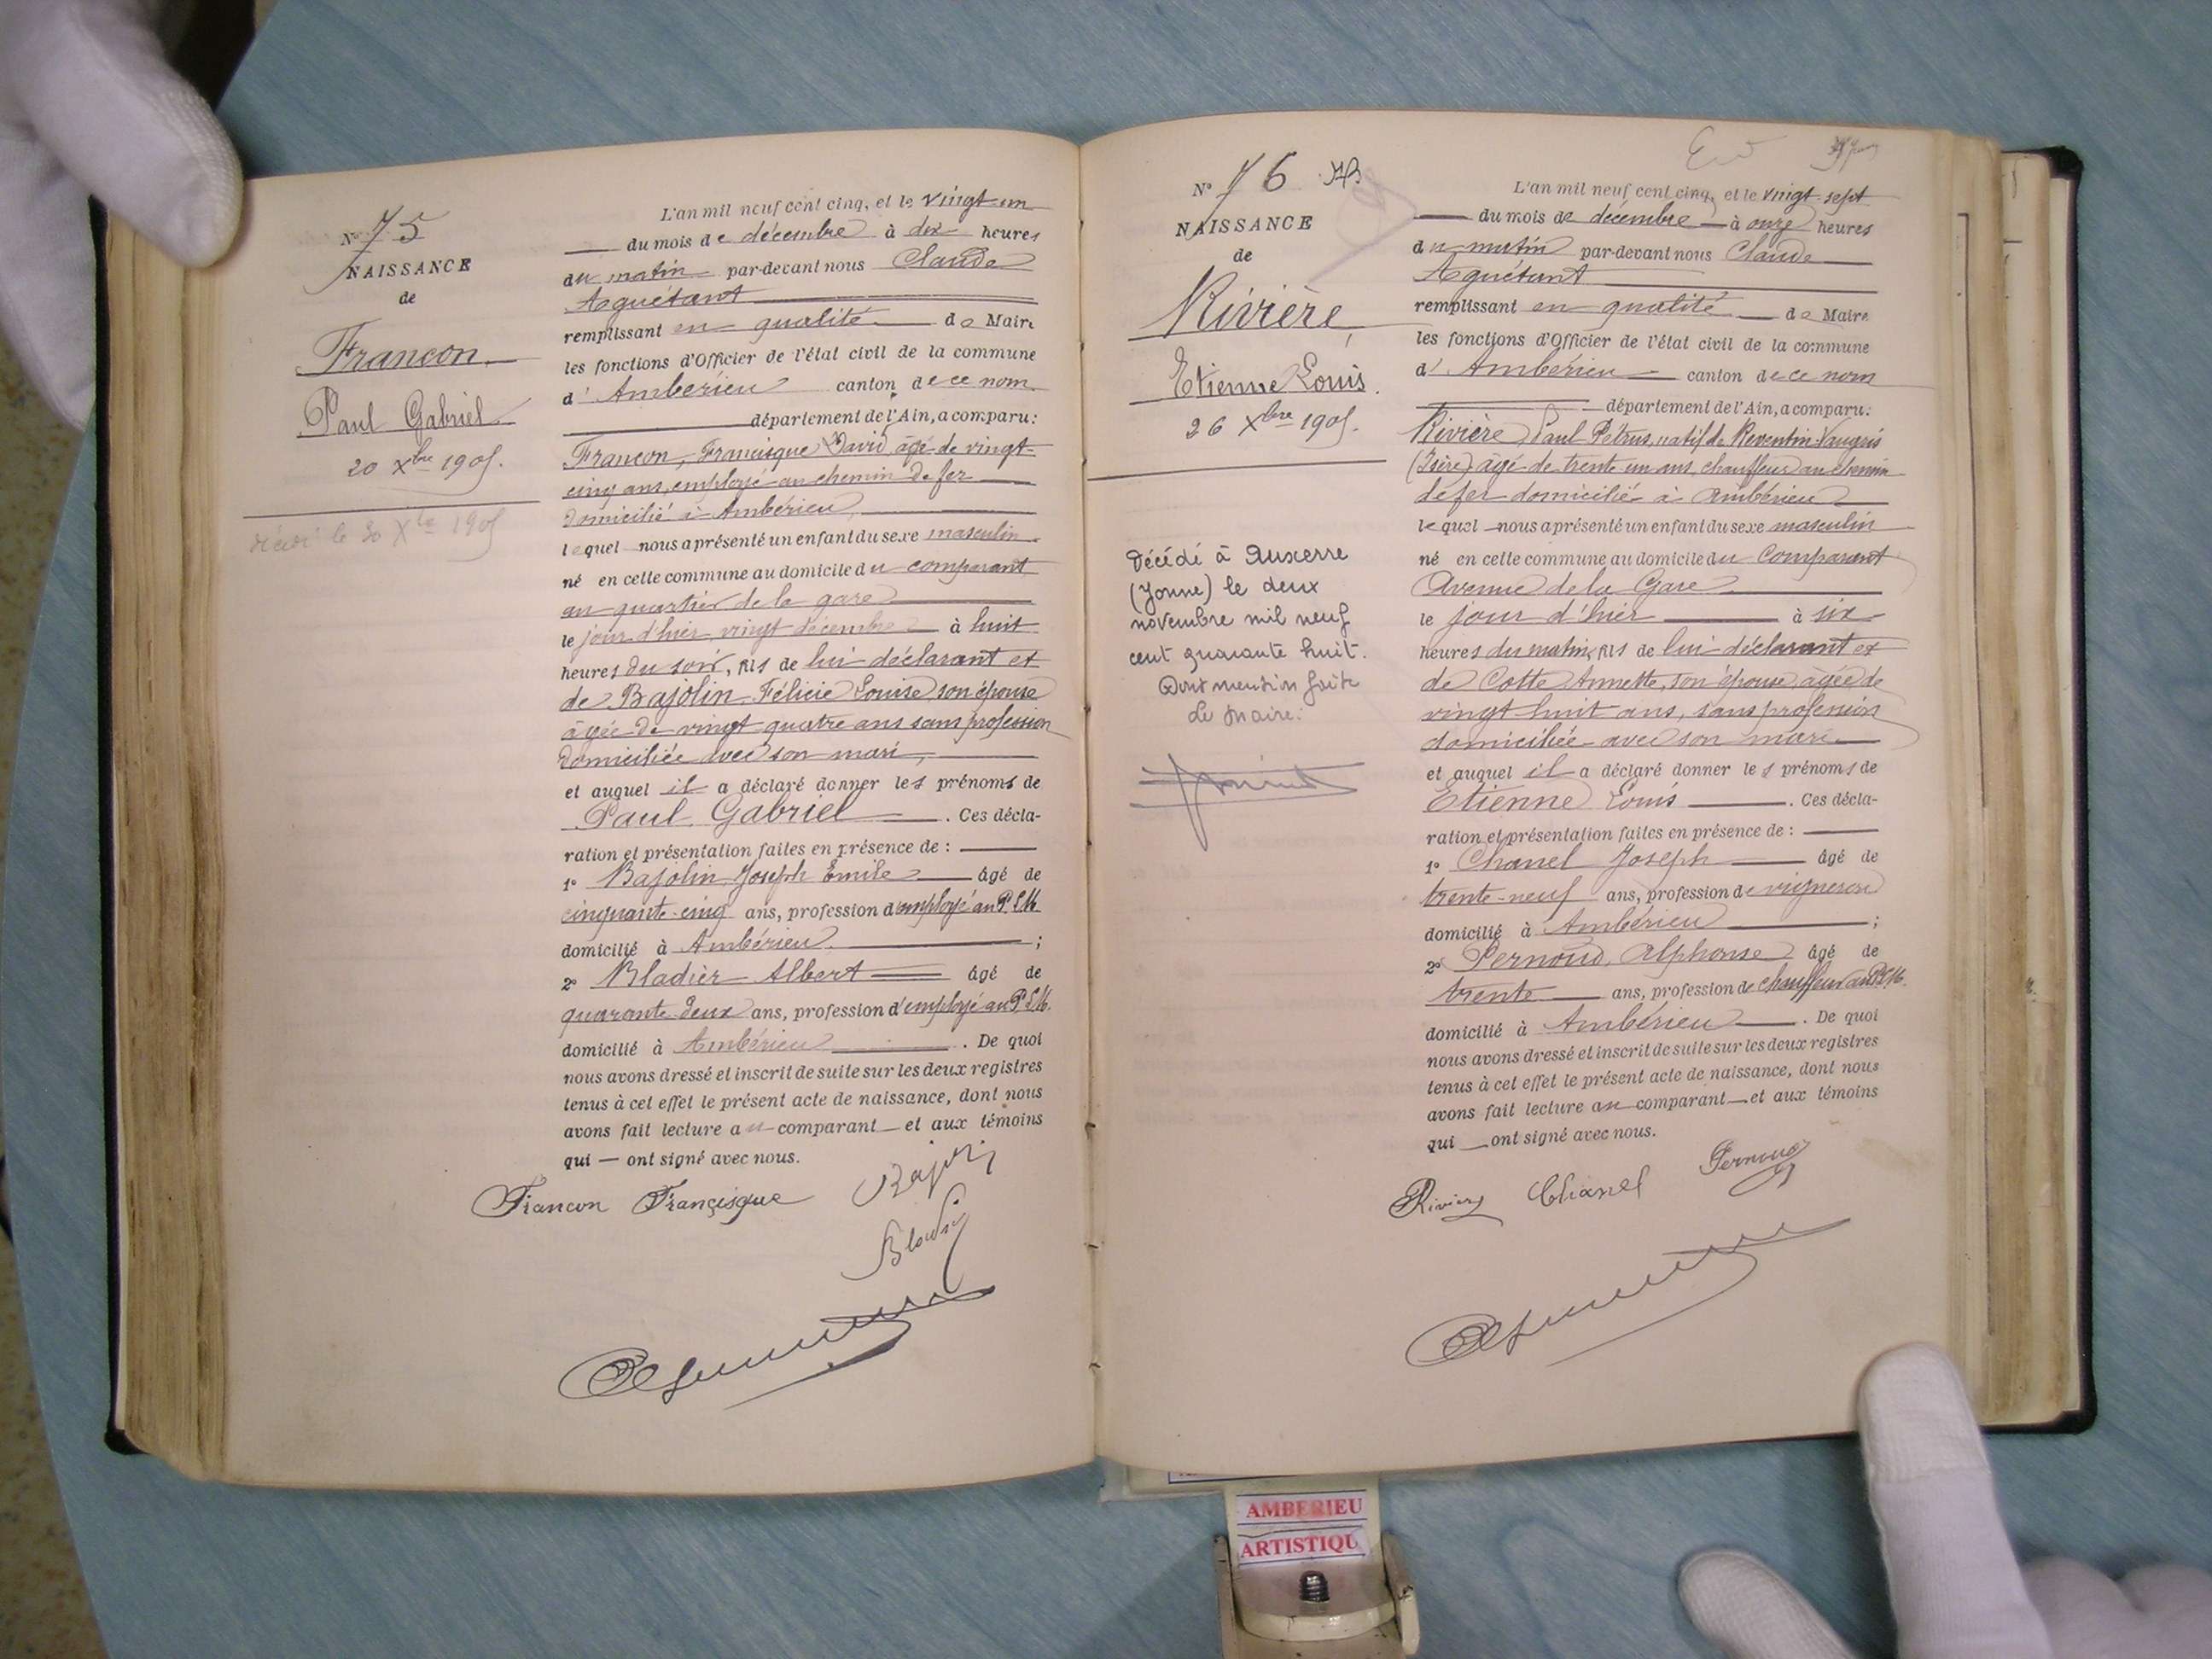 N° 75
NAISSANCE
de
Francon
Paul Gabriel
20 Xbre 1905.
le 30 Xbre 1905
L'an mil neuf cent cinq, et le vingt-un
du mois de décembre à dix heures
du matin par-devant nous Claude
Aguétant
remplissant en qualité de Maire
les fonctions d'Officier de l'état civil de la commune
d'Ambérieu canton de ce nom
département de l'Ain, a comparu:
Francon, Francisque David, âgé de vingt-
cinq ans, employé au chemin de fer
domicilié à Ambérieu
lequel nous a présenté un enfant du sexe masculin
né en cette commune au domicile du comparant
au quartier de la gare
le jour d'hier vingt décembre à huit
heures du soir, fils de lui déclarant et
de Bajolin Félicie Louise son épouse
âgée de vingt quatre ans sans profession
domiciliée avec son mari,
et auquel il a déclaré donner les prénoms de
Paul Gabriel. Ces décla-
ration et présentation faites en présence de :
1° Bajolin Joseph Emile âgé de
cinquante-cinq ans, profession d'employé au P.L.M
domicilié à Ambérieu ;
2° Bladier Albert âgé de
quarante deux ans, profession d'employé au P.L.M.
domicilié à Ambérieu. De quoi
nous avons dressé et inscrit de suite sur les deux registres
tenus à cet effet le présent acte de naissance, dont nous
avons fait lecture au comparant et aux témoins
qui — ont signé avec nous.
Francon Françisque
N° 76
NAISSANCE
de
Rivière,
Etienne Louis.
26 Xbre 1905.
Décédé à Auxerre
(Yonne) le deux
novembre mil neuf
cent quarante huit.
Dont mention faite
Le Maire.
L'an mil neuf cent cinq, et le vingt-sept
du mois de décembre à onze heures
du matin par-devant nous Claude
Aguétant
remplissant en qualité de Maire
les fonctions d'Officier de l'état civil de la commune
d'Ambérieu canton de ce nom
département de l'Ain, a comparu:
Rivière Paul Pétrus, natif de Reventin-Vaugris
(Isère) âgé de trente un ans, chauffeur au chemin
de fer domicilié à Ambérieu
lequel nous a présenté un enfant du sexe masculin
né en cette commune au domicile du Comparant
Avenue de la Gare
le jour d'hier à six
heures du matin, fils de lui déclarant et
de Cotte Annette, son épouse, âgée de
vingt huit ans, sans profession
domiciliée avec son mari
et auquel il a déclaré donner les prénoms de
Etienne Louis. Ces décla-
ration et présentation faites en présence de :
1° Chanel Joseph âgé de
trente-neuf ans, profession de vigneron
domicilié à Ambérieu ;
2° Pernoud, Alphonse âgé de
trente ans, profession de chauffeur au P.L.M.
domicilié à Ambérieu. De quoi
nous avons dressé et inscrit de suite sur les deux registres
tenus à cet effet le présent acte de naissance, dont nous
avons fait lecture au comparant et aux témoins
qui ont signé avec nous.
Chanel Pernoud
AMBERIEU
ARTISTIQU